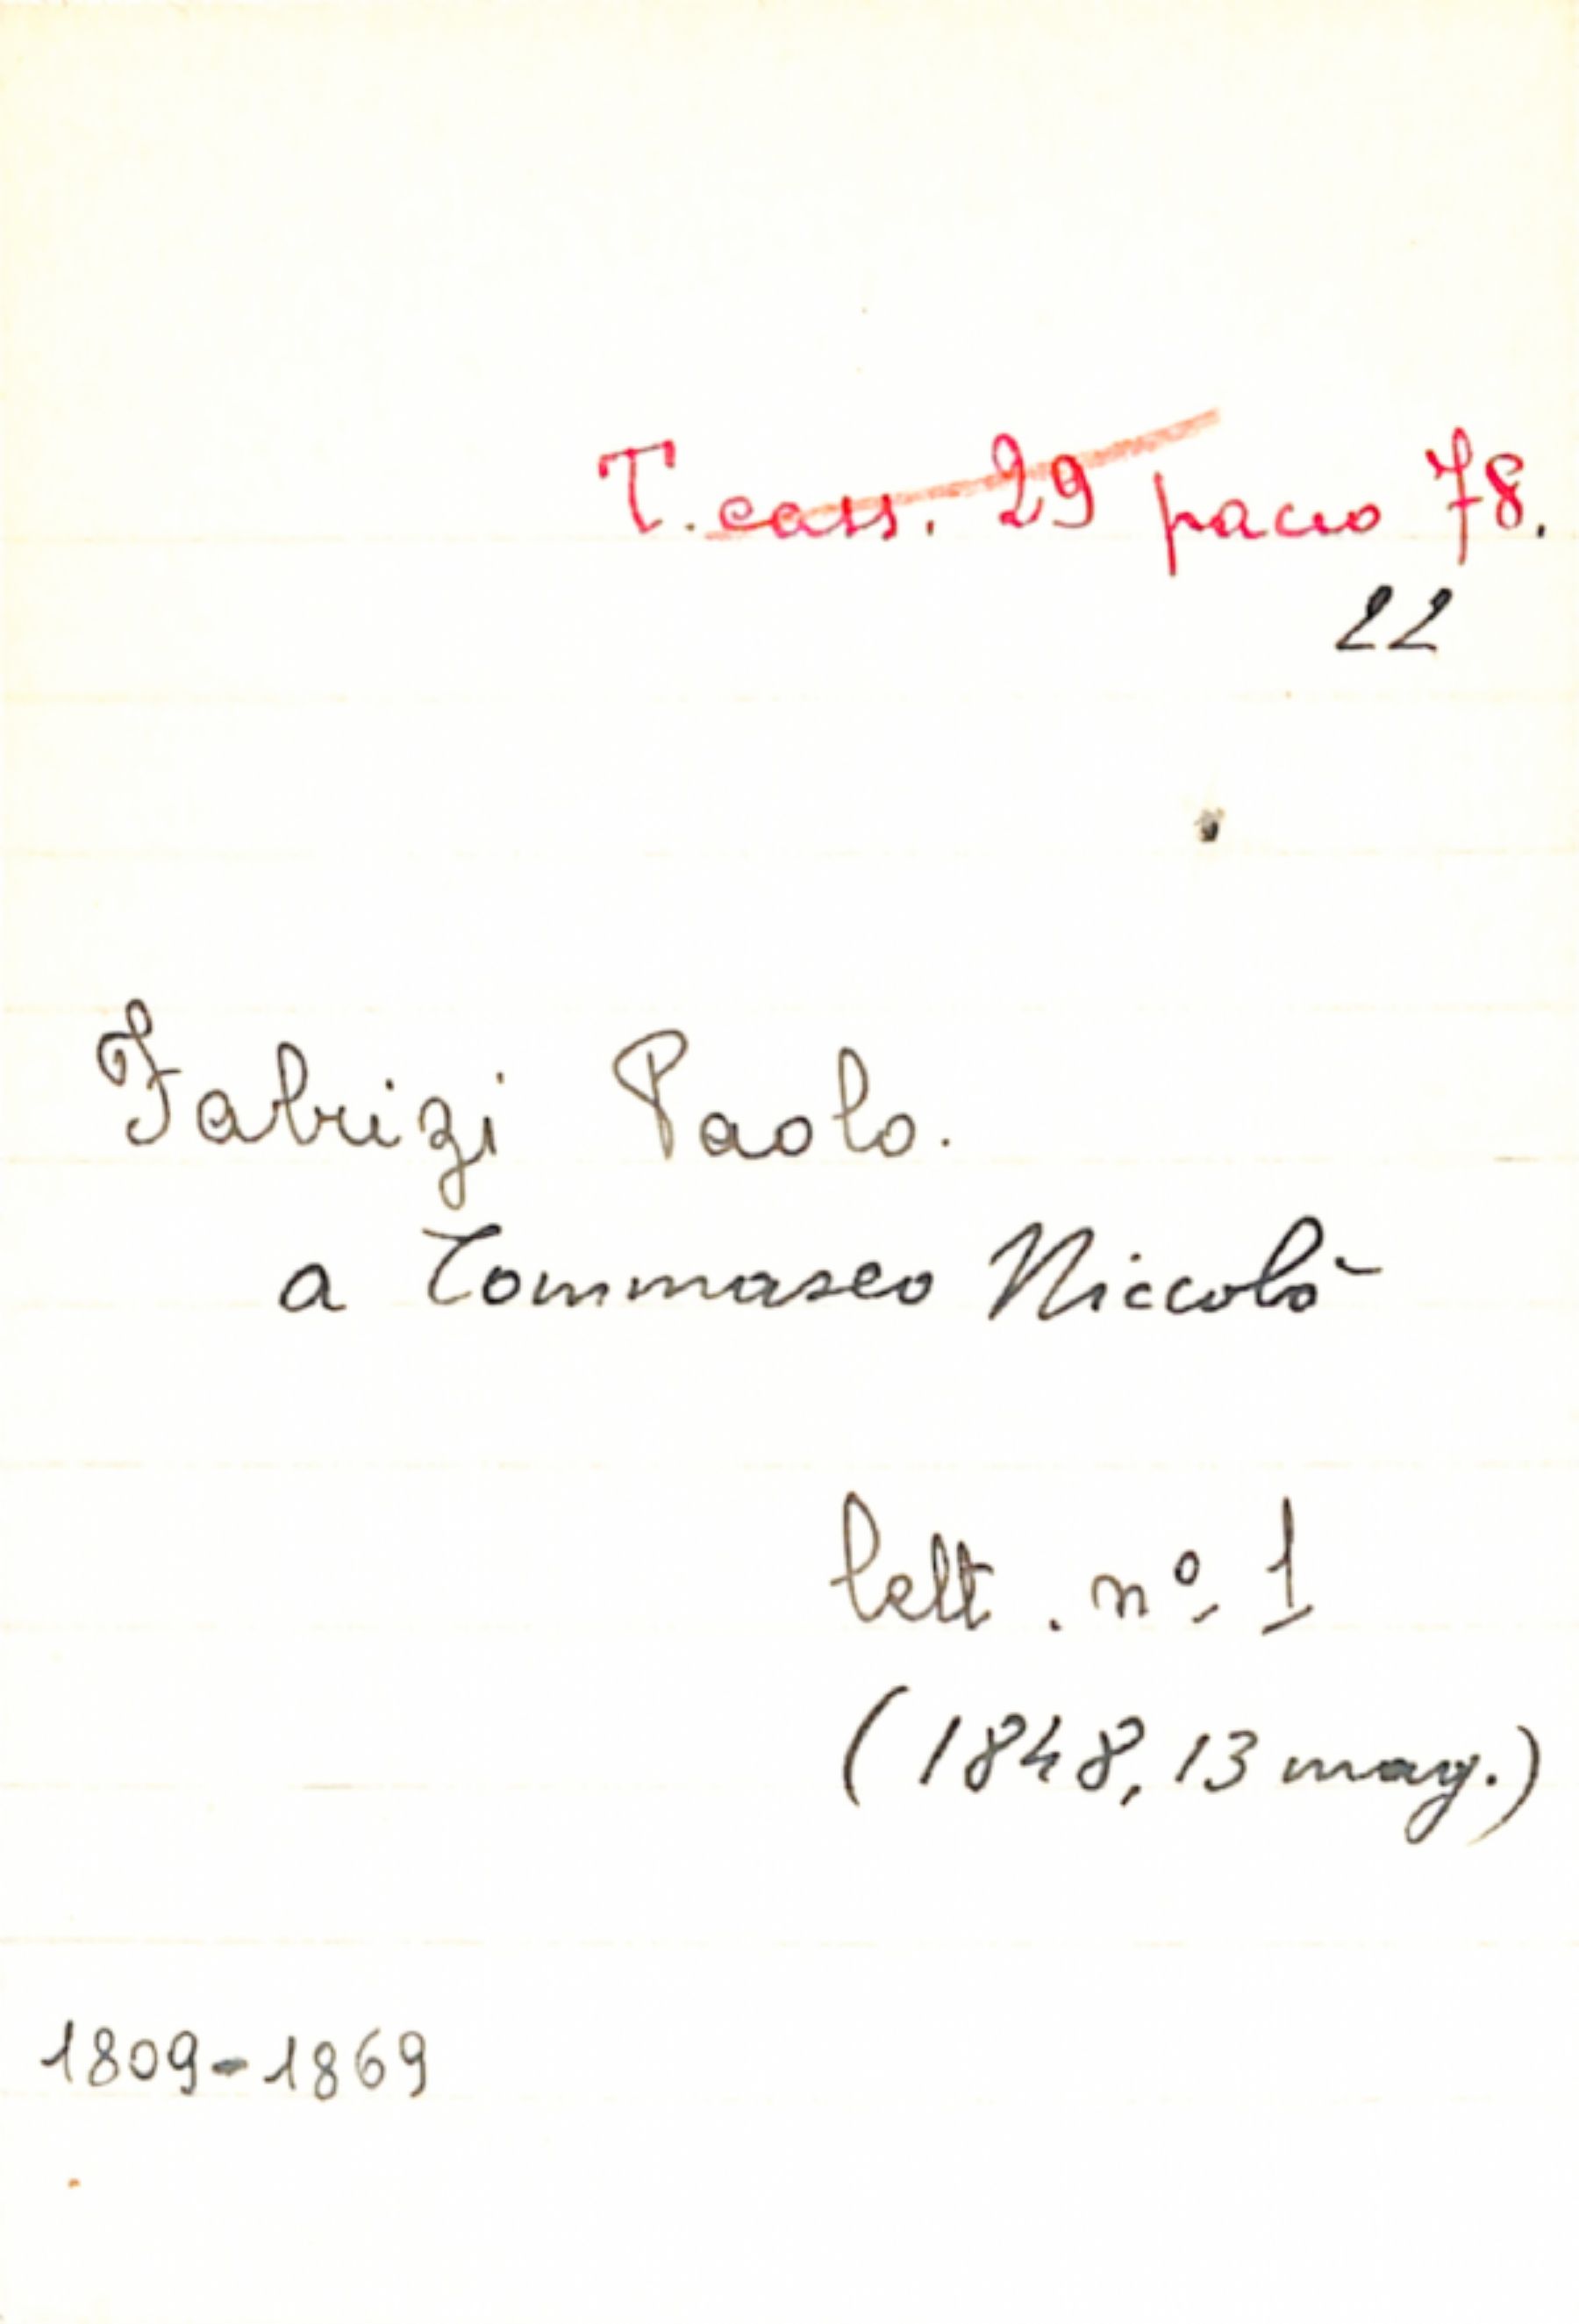 T. cass. 29 pacco 78.
22
Fabrizi Paolo.
a Tommaseo Niccolò
lett. nº 1
(1848, 13 mag.)
1809-1869